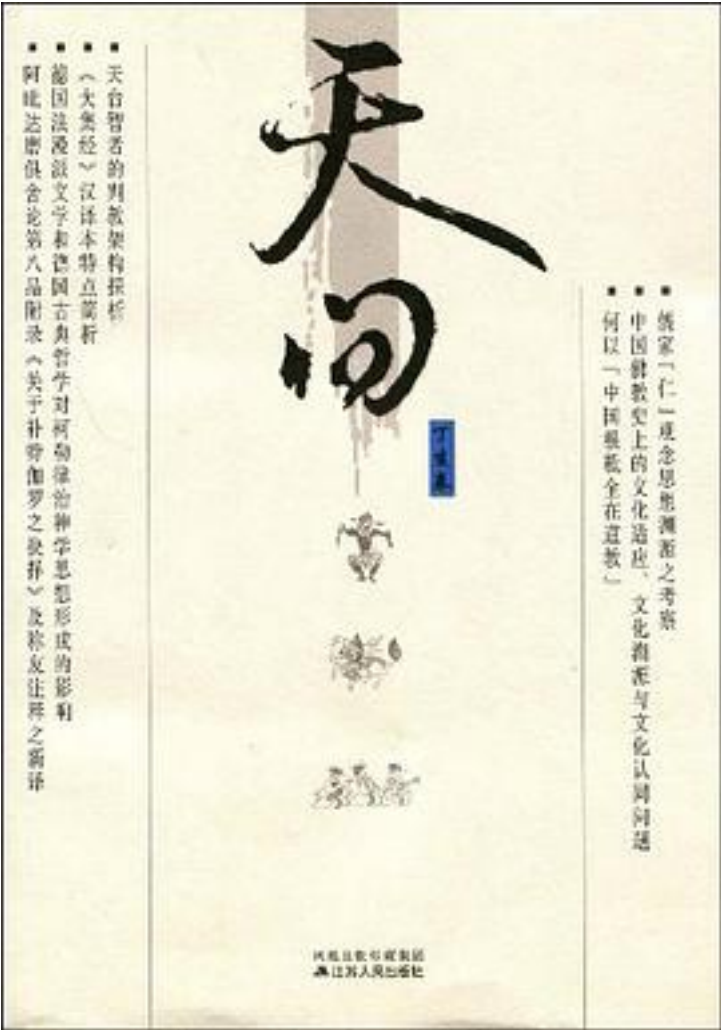 天问
丁亥卷
儒家「仁」观念思想渊源之考察
中国佛教史上的文化适应、文化溯源与文化认同问题
何以「中国根柢全在道教」
天台智者的判教架构探析
《大集经》汉译本特点简析
德国浪漫派文学和德国古典哲学对柯勒律治神学思想形成的影响
阿毗达磨俱舍论第八品附录《关于补特伽罗之抉择》及称友注释之新译
凤凰出版传媒集团
江苏人民出版社